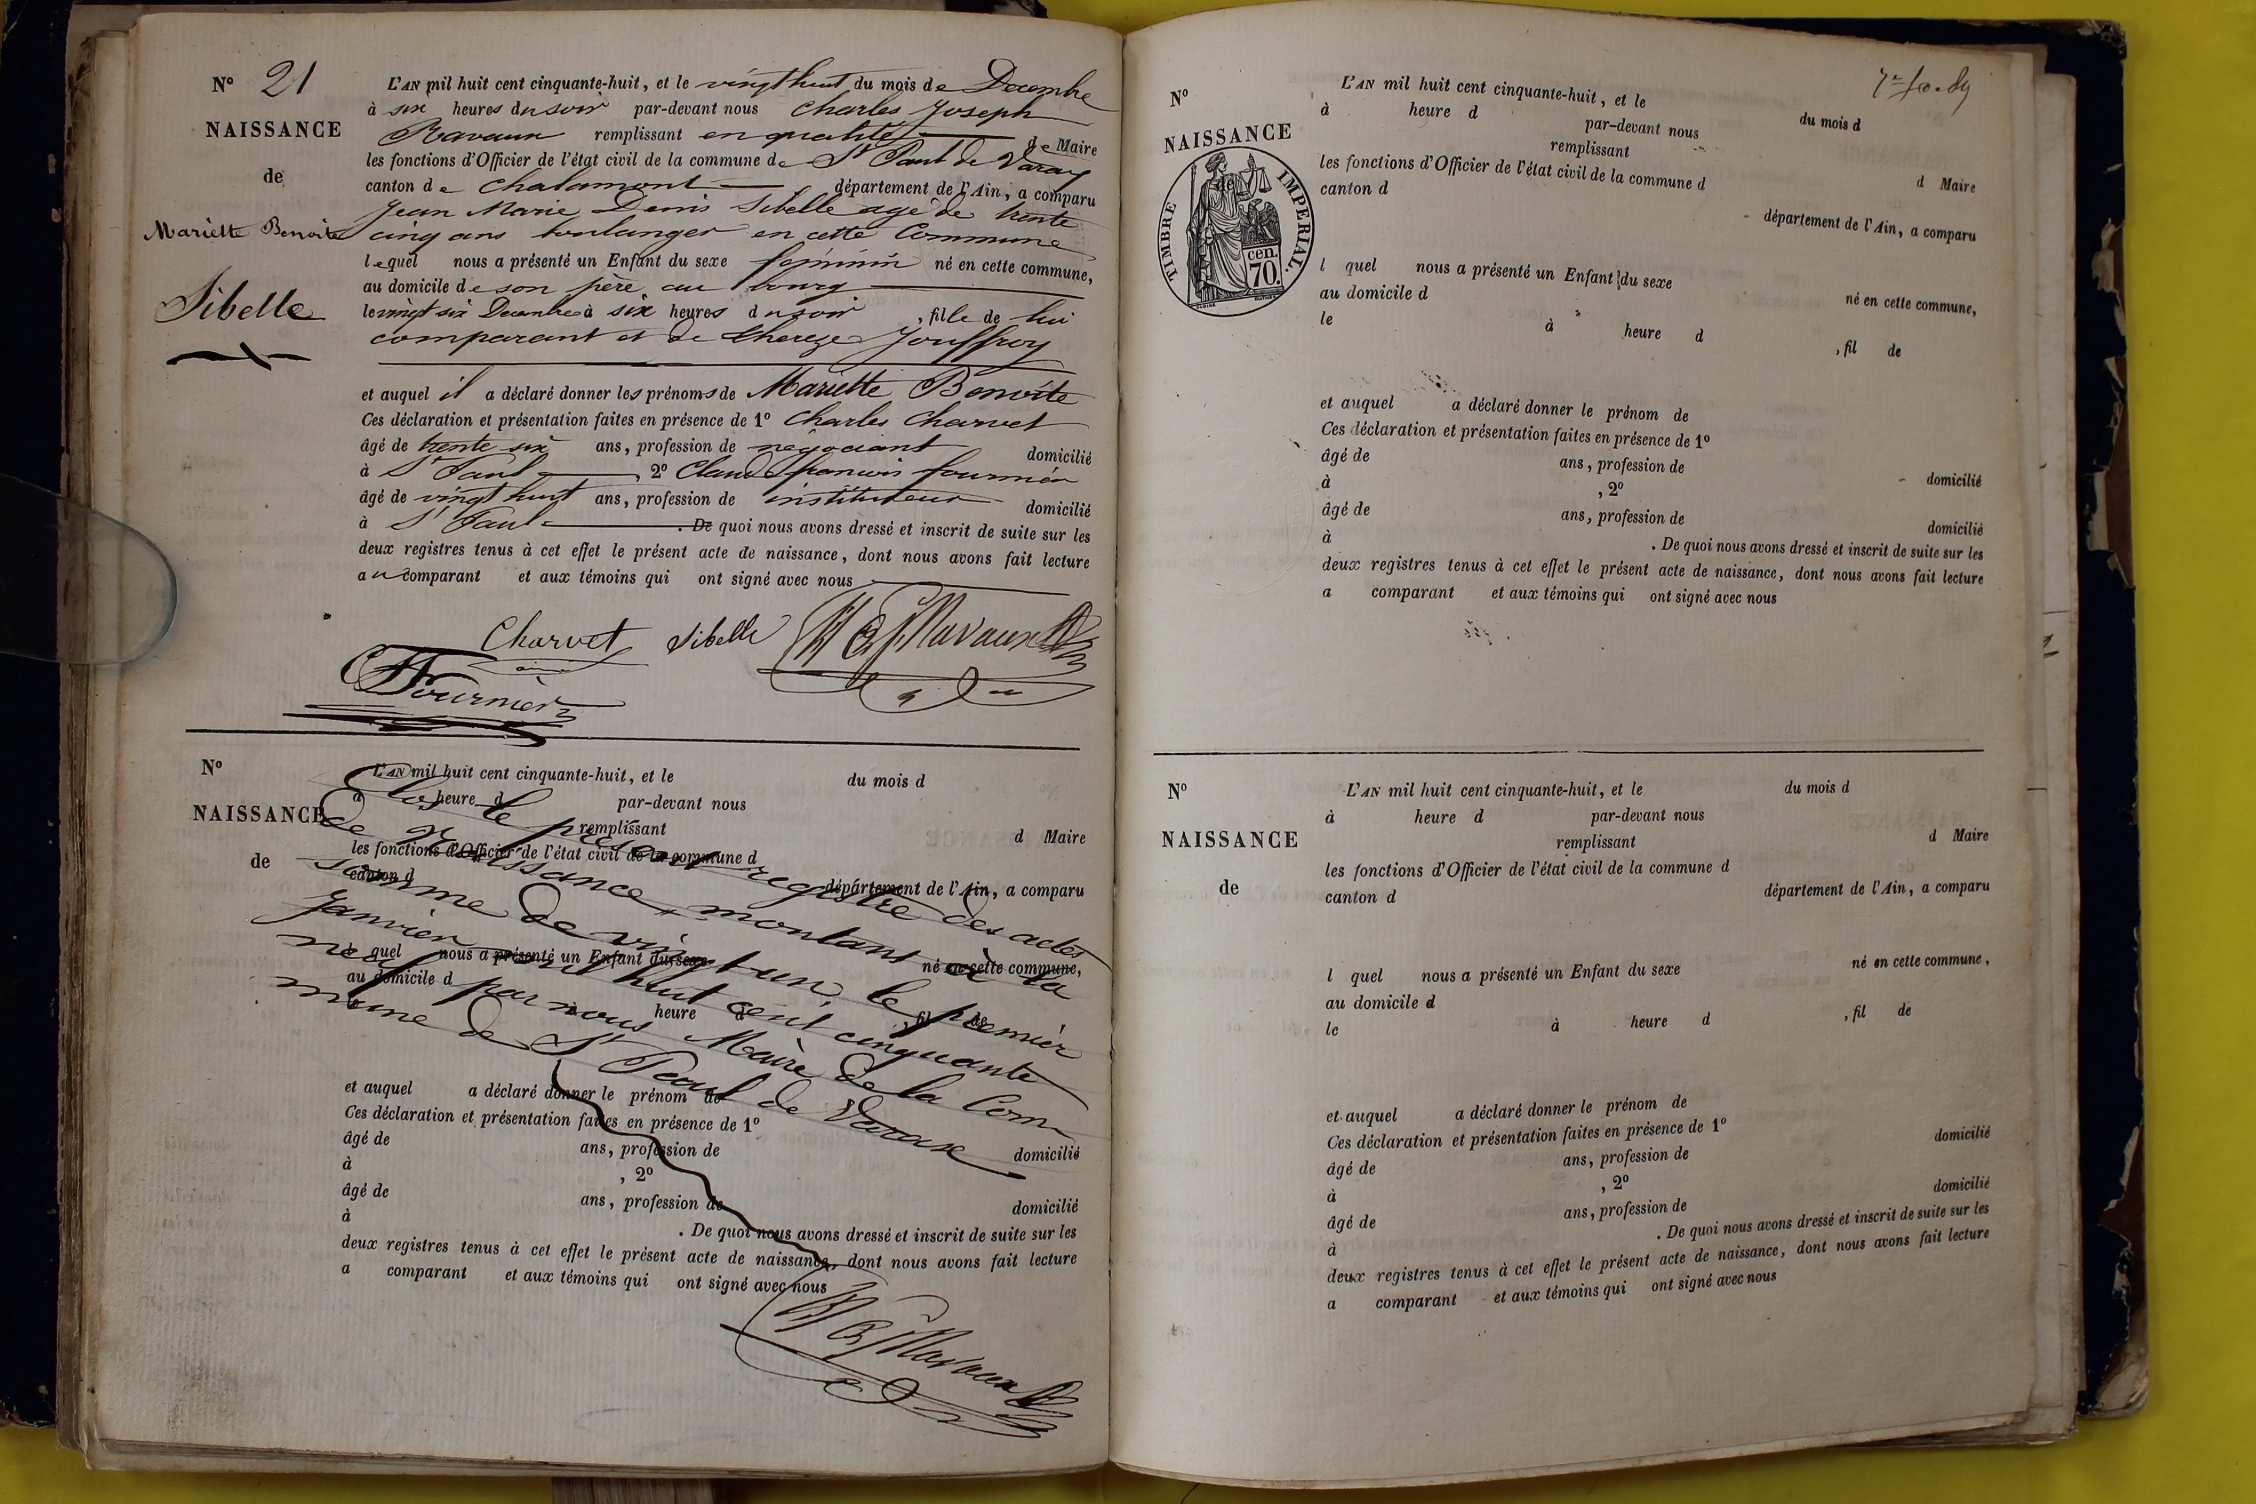 N° 21
NAISSANCE
de
Mariette Benoite
Sibelle
L'AN mil huit cent cinquante-huit, et le vingt huit du mois de Decembre
à six heures du soir par-devant nous Charles Joseph
Ravaux remplissant en qualité de Maire
les fonctions d'Officier de l'état civil de la commune de St Paul de Varax
canton de Chalamont département de l'Ain, a comparu
Jean Marie Denis Sibelle agé de trente
cinq ans boulanger en cette Commune
lequel nous a présenté un Enfant du sexe feminin né en cette commune,
au domicile de son père au bourg
le vingt six Decembre à six heures du soir, fille de lui
comparant et de Thereze Jouffroy
et auquel il a déclaré donner les prénoms de Mariette Benoite
Ces déclaration et présentation faites en présence de 1° Charles Charvet
âgé de trente six ans, profession de négociant domicilié
à St Paul 2° Claude françois fournier
âgé de vingt huit ans, profession de instituteur domicilié
à St Paul . De quoi nous avons dressé et inscrit de suite sur les
deux registres tenus à cet effet le présent acte de naissance, dont nous avons fait lecture
au comparant et aux témoins qui ont signé avec nous
Charvet Sibelle Ravaux
Fournier
N°
NAISSANCE
de
L'AN mil huit cent cinquante-huit, et le du mois d
à heure d par-devant nous
remplissant d Maire
les fonctions d'Officier de l'état civil de la commune d
canton d département de l'Ain, a comparu
l quel nous a présenté un Enfant du sexe né en cette commune,
au domicile d
le à heure d , fil de
et auquel a déclaré donner le prénom de
Ces déclaration et présentation faites en présence de 1°
âgé de ans, profession de domicilié
à , 2°
âgé de ans, profession de domicilié
à . De quoi nous avons dressé et inscrit de suite sur les
deux registres tenus à cet effet le présent acte de naissance, dont nous avons fait lecture
a comparant et aux témoins qui ont signé avec nous
Clos le présent registre des actes
de Naissance, montant à la
somme de vingt un, le premier
Janvier mil huit cent cinquante
neuf par nous Maire de la Com
mune de St Paul de Varax
Ravaux
N°
NAISSANCE
de
TIMBRE IMPERIAL.
cen.
70.
L'AN mil huit cent cinquante-huit, et le du mois d
à heure d par-devant nous
remplissant d Maire
les fonctions d'Officier de l'état civil de la commune d
canton d département de l'Ain, a comparu
l quel nous a présenté un Enfant du sexe né en cette commune,
au domicile d
le à heure d , fil de
et auquel a déclaré donner le prénom de
Ces déclaration et présentation faites en présence de 1°
âgé de ans, profession de domicilié
à , 2°
âgé de ans, profession de domicilié
à . De quoi nous avons dressé et inscrit de suite sur les
deux registres tenus à cet effet le présent acte de naissance, dont nous avons fait lecture
a comparant et aux témoins qui ont signé avec nous
N°
NAISSANCE
de
L'AN mil huit cent cinquante-huit, et le du mois d
à heure d par-devant nous
remplissant d Maire
les fonctions d'Officier de l'état civil de la commune d
canton d département de l'Ain, a comparu
l quel nous a présenté un Enfant du sexe né en cette commune,
au domicile d
le à heure d , fil de
et auquel a déclaré donner le prénom de
Ces déclaration et présentation faites en présence de 1°
âgé de ans, profession de domicilié
à , 2°
âgé de ans, profession de domicilié
à . De quoi nous avons dressé et inscrit de suite sur les
deux registres tenus à cet effet le présent acte de naissance, dont nous avons fait lecture
a comparant et aux témoins qui ont signé avec nous